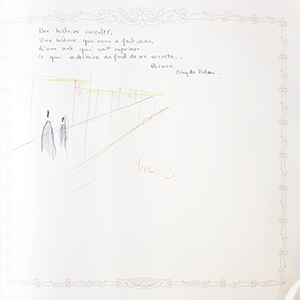 Une histoire racontée,
Une histoire qui nous a fait vibrer,
d'une art qui sait exprimer
ce qui se dessine au fond de ses secrets...
Bravo.
Merci